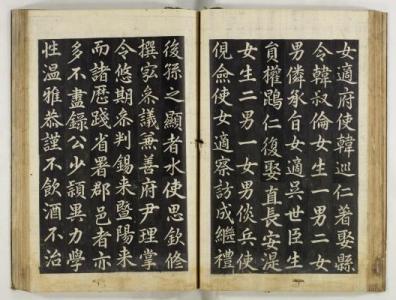 女適府使韓巡仁著娶縣
令韓叔倫女生一男二女
男僯承旨女適吳世臣生
貟權鵾仁復娶直長安湜
女生二男一女男倓兵使
俔僉使女適察訪成繼禮
後孫之顯者水使思欽修
撰宓叅議兼善府尹理掌
令悠期叅判錫来暨陽来
而諸歴踐省署郡邑者亦
多不盡録公少頴異力學
性温雅恭謹不飲酒不治